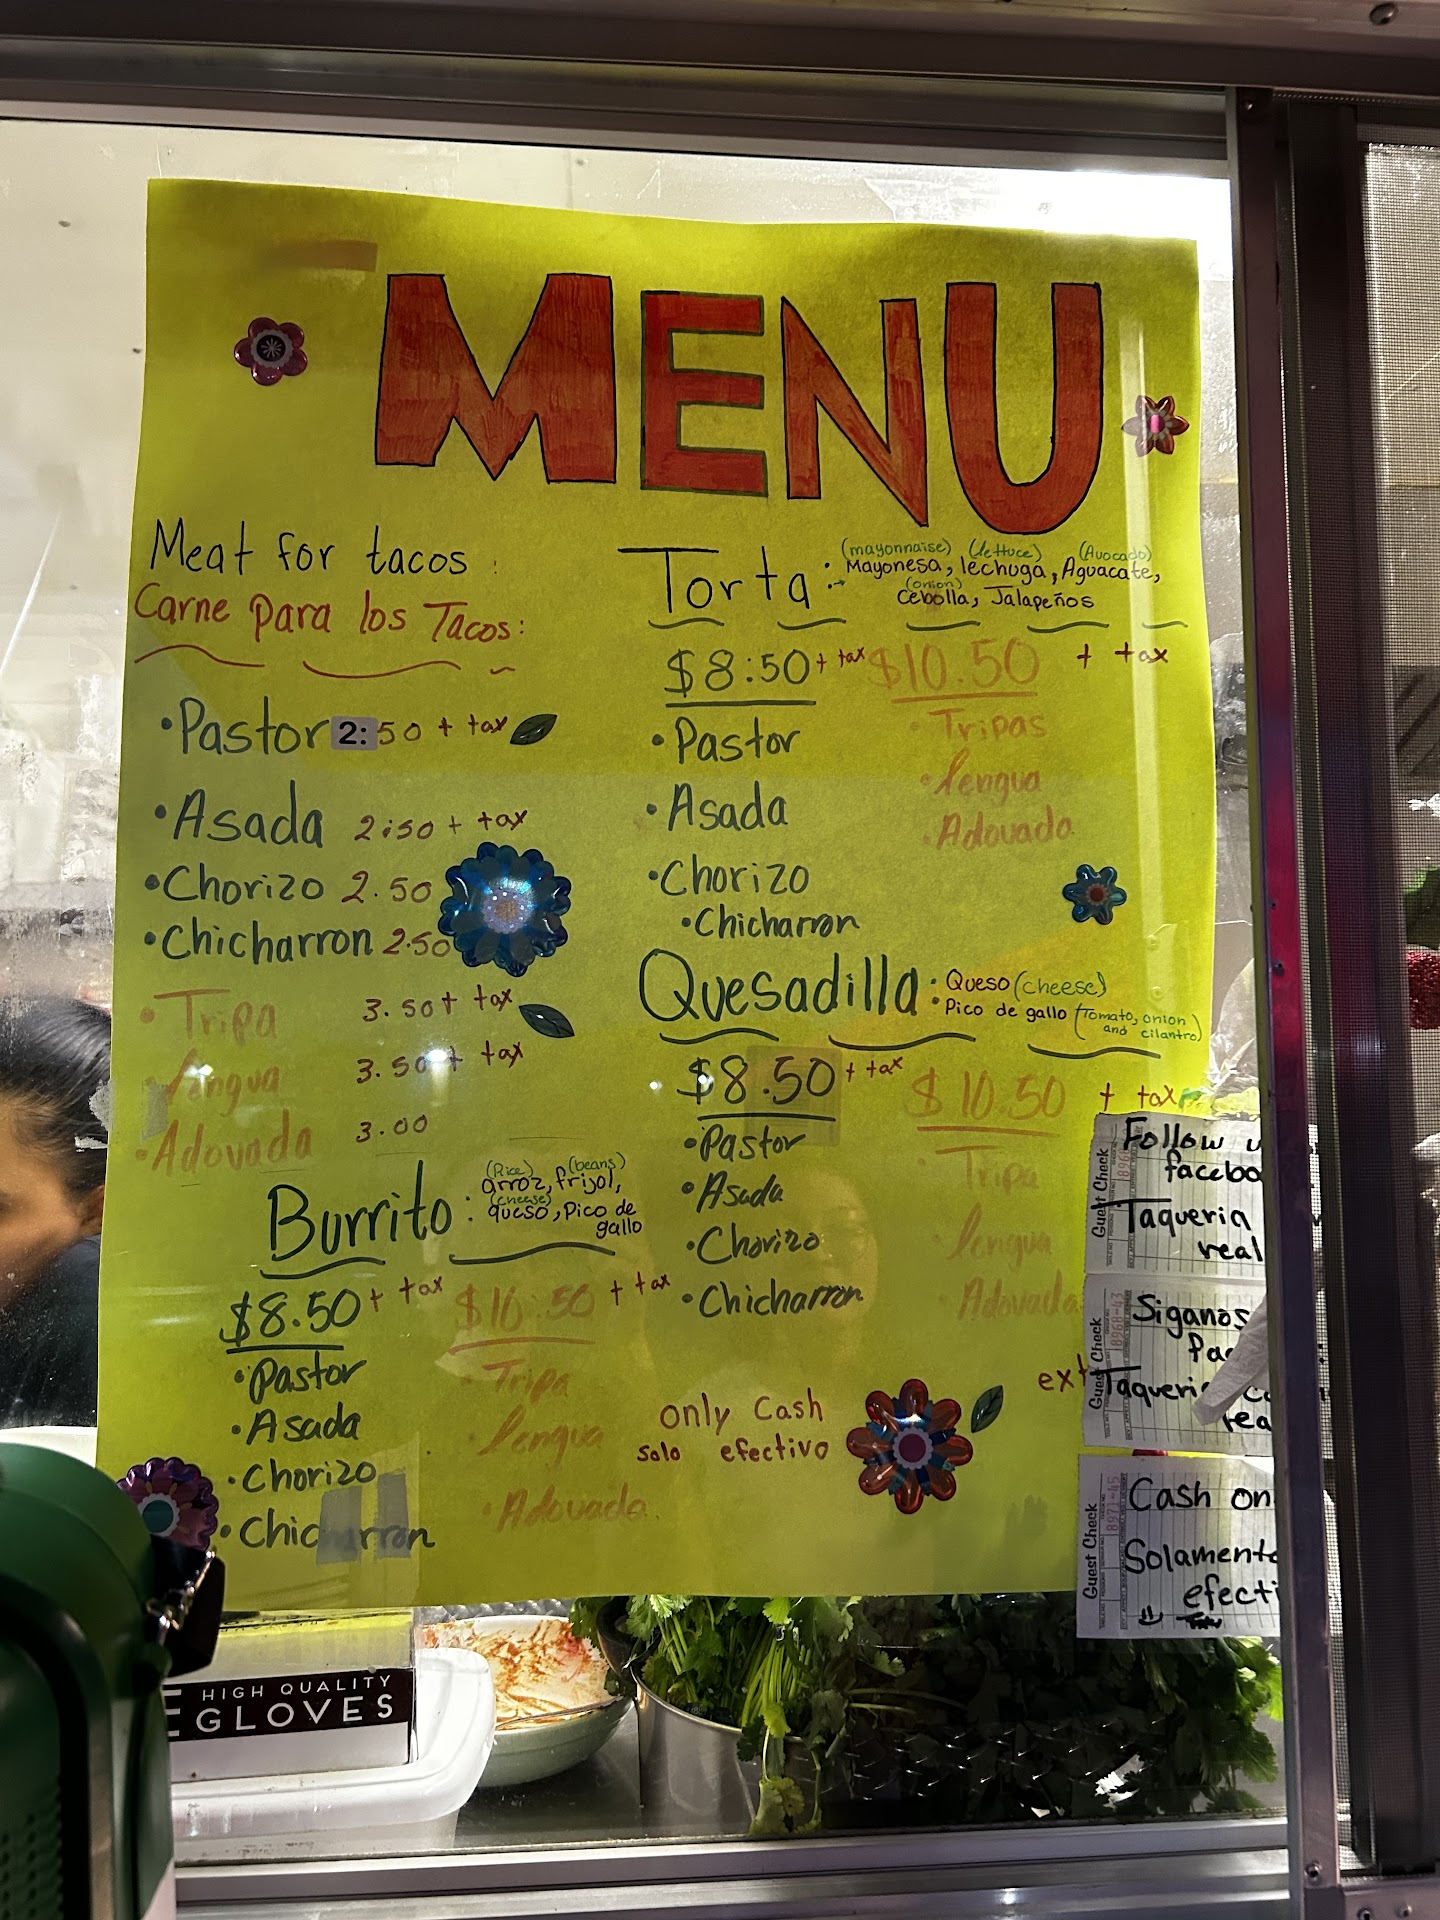 MENU
Meat for tacos :
Carne para los Tacos:
•Pastor 2:50 + tax
•Asada 2:50 + tax
•Chorizo 2.50
•Chicharron 2.50
•Tripa 3.50 + tax
•lengua 3.50 + tax
•Adovada 3.00
Burrito :
(Rice) (beans)
arroz, frijol,
(cheese)
queso, Pico de
gallo
$8.50 + tax $10.50 + tax
•Pastor
•Asada
•Chorizo
•Chicharron
•Tripa
•lengua
•Adovada.
Torta :
(mayonnaise) (lettuce) (Avocado)
Mayonesa, lechuga, Aguacate,
(onion)
cebolla, Jalapeños
$8:50 + tax $10.50 + tax
•Pastor
•Asada
•Chorizo
•Chicharron
•Tripas
•lengua
•Adovada
Quesadilla :
Queso (cheese)
Pico de gallo (Tomato, onion
and cilantro)
$8.50 + tax $10.50 + tax
•Pastor
•Asada
•Chorizo
•Chicharron
•Tripa
•lengua
•Adovada
only Cash
solo efectivo
ext
Guest Check
Follow u
facebo
Taqueria
real
Guest Check
8968-43
Siganos
Taqueri
rea
Guest Check
8971-45
Cash on
Solament
efecti
HIGH QUALITY
GLOVES